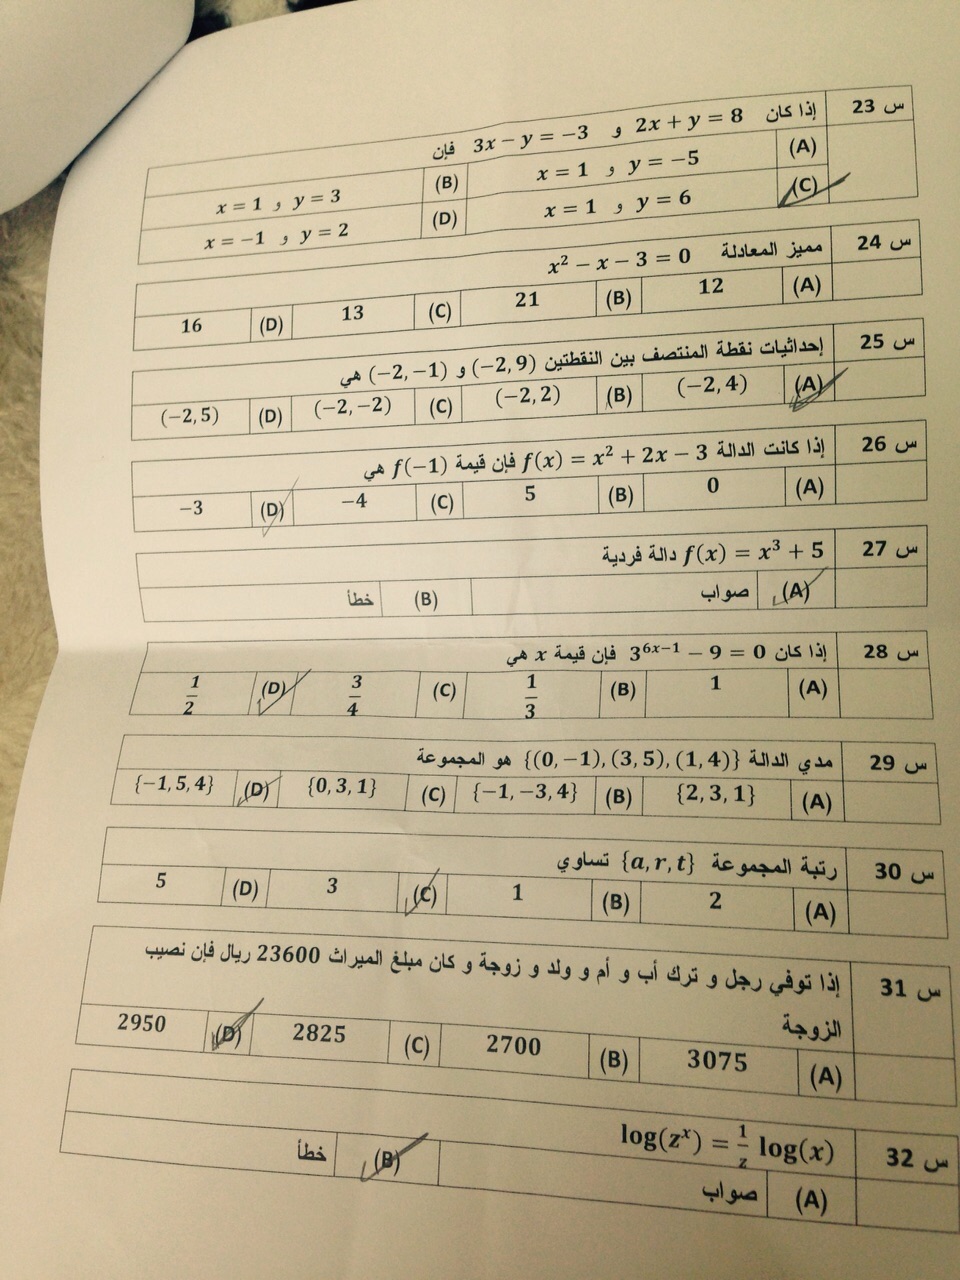 س 23 إذا كان 2x + y = 8 و 3x − y = −3 فإن
(A) x = 1 و y = −5 (B) x = 1 و y = 3
(C) x = 1 و y = 6 (D) x = −1 و y = 2
س 24 مميز المعادلة x² − x − 3 = 0
(A) 12 (B) 21 (C) 13 (D) 16
س 25 إحداثيات نقطة المنتصف بين النقطتين (−2, 9) و (−2, −1) هي
(A) (−2, 4) (B) (−2, 2) (C) (−2, −2) (D) (−2, 5)
س 26 إذا كانت الدالة f(x) = x² + 2x − 3 فإن قيمة f(−1) هي
(A) 0 (B) 5 (C) −4 (D) −3
س 27 f(x) = x³ + 5 دالة فردية
(A) صواب (B) خطأ
س 28 إذا كان 3^{6x−1} − 9 = 0 فإن قيمة x هي
(A) 1 (B) 1/3 (C) 3/4 (D) 1/2
س 29 مدي الدالة {(0, −1), (3, 5), (1, 4)} هو المجموعة
(A) {2, 3, 1} (B) {−1, −3, 4} (C) {0, 3, 1} (D) {−1, 5, 4}
س 30 رتبة المجموعة {a, r, t} تساوي
(A) 2 (B) 1 (C) 3 (D) 5
س 31 إذا توفي رجل و ترك أب و أم و ولد و زوجة و كان مبلغ الميراث 23600 ريال فإن نصيب
الزوجة
(A) 3075 (B) 2700 (C) 2825 (D) 2950
س 32 log(zˣ) = 1/z log(x)
(A) صواب (B) خطأ